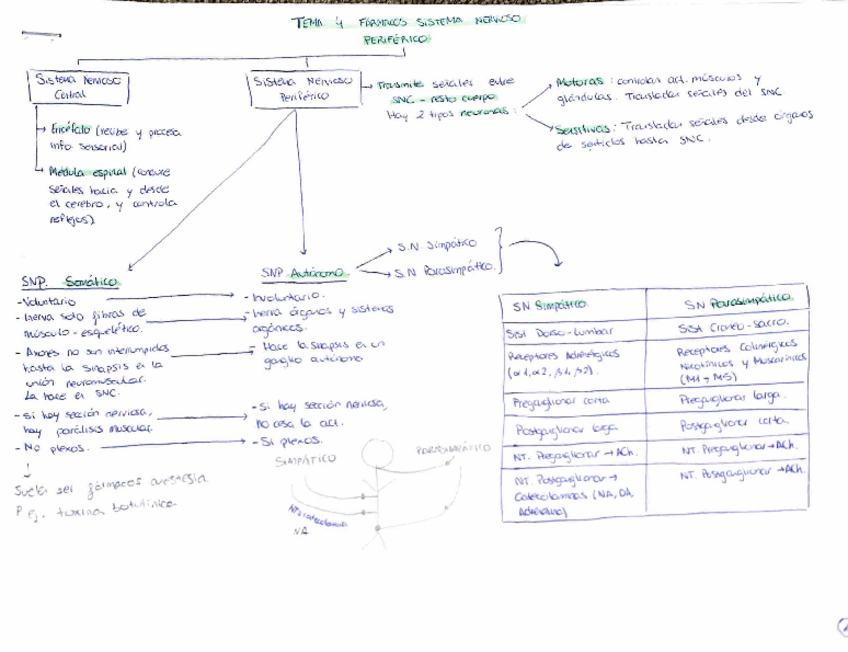 TEMA 4 FÁRMACOS SISTEMA NERVIOSO
PERIFÉRICO
Sistema Nervioso
Central
Encéfalo (recibe y procesa
info. sensorial)
Médula espinal (conduce
señales hacia y desde
el cerebro, y controla
reflejos)
Sistema Nervioso
Periférico
Transmite señales entre
SNC - resto cuerpo
Hay 2 tipos neuronas:
Motoras: controlan act. músculos y
glándulas. Trasladar señales del SNC
Sensitivas: Trasladar señales desde órganos
de sentidos hasta SNC.
SNP. Somático
- Voluntario
- Inerva solo fibras de
músculo-esquelético.
- Axones no son interrumpidos
hasta la sinapsis en la
unión neuromuscular.
La hace el SNC.
- Si hay sección nerviosa,
hay parálisis muscular.
- No plexos.
Suele ser fármacos anestesia
P. ej. toxina botulínica
SNP Autónomo
S.N. Simpático
S.N Parasimpático
- Involuntario.
- Inerva órganos y sistemas
orgánicos.
- Hace la sinapsis en un
ganglio autónomo
- Si hay sección nerviosa,
no cesa la act.
- Si plexos.
SIMPÁTICO
PARASIMPÁTICO
NA
SN Simpático
SN Parasimpático
Sist Dorso-Lumbar
Sist Cráneo-Sacro.
Receptores Adrenérgicos
(α1, α2, β1, β2).
Receptores Colinérgicos
Nicotínicos y Muscarínicos
(M1 → M5)
Preganglionar corta
Preganglionar larga.
Postganglionar larga
Postganglionar corta.
NT. Preganglionar → ACh.
NT. Preganglionar → ACh.
NT. Postganglionar →
Catecolaminas (NA, DA,
Adrenalina)
NT. Postganglionar → ACh.